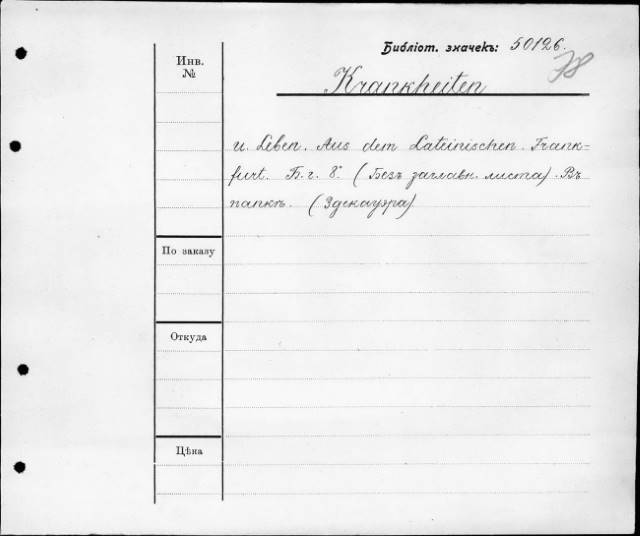 Библіот. значекъ: 50126.
78
Инв.
№
Krankheiten
u. Leben. Aus dem Lateinischen. Frank=
furt. Б. г. 8. (Безъ заглавн. листа). Въ
папкѣ. (Здекауэра)
По заказу
Откуда
Цѣна